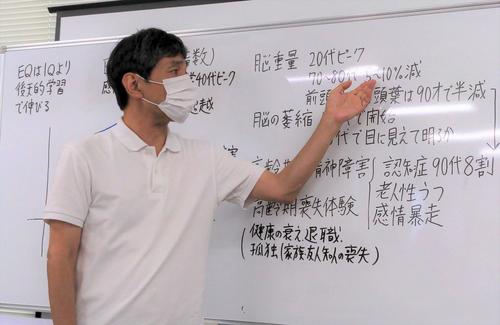 EQはIQより
後天的学習
で伸びる
数)
40代ピーク
脳重量 20代ピーク
70~80才 5~10%減
前頭
頭葉は90才で半減
脳の萎縮
で開始
代で目に見えて明らか
高齢期
精神障害
認知症 90代8割
老人性うつ
感情暴走
高齢期喪失体験
(健康の衰え,退職,
孤独(家族友人知人の喪失)